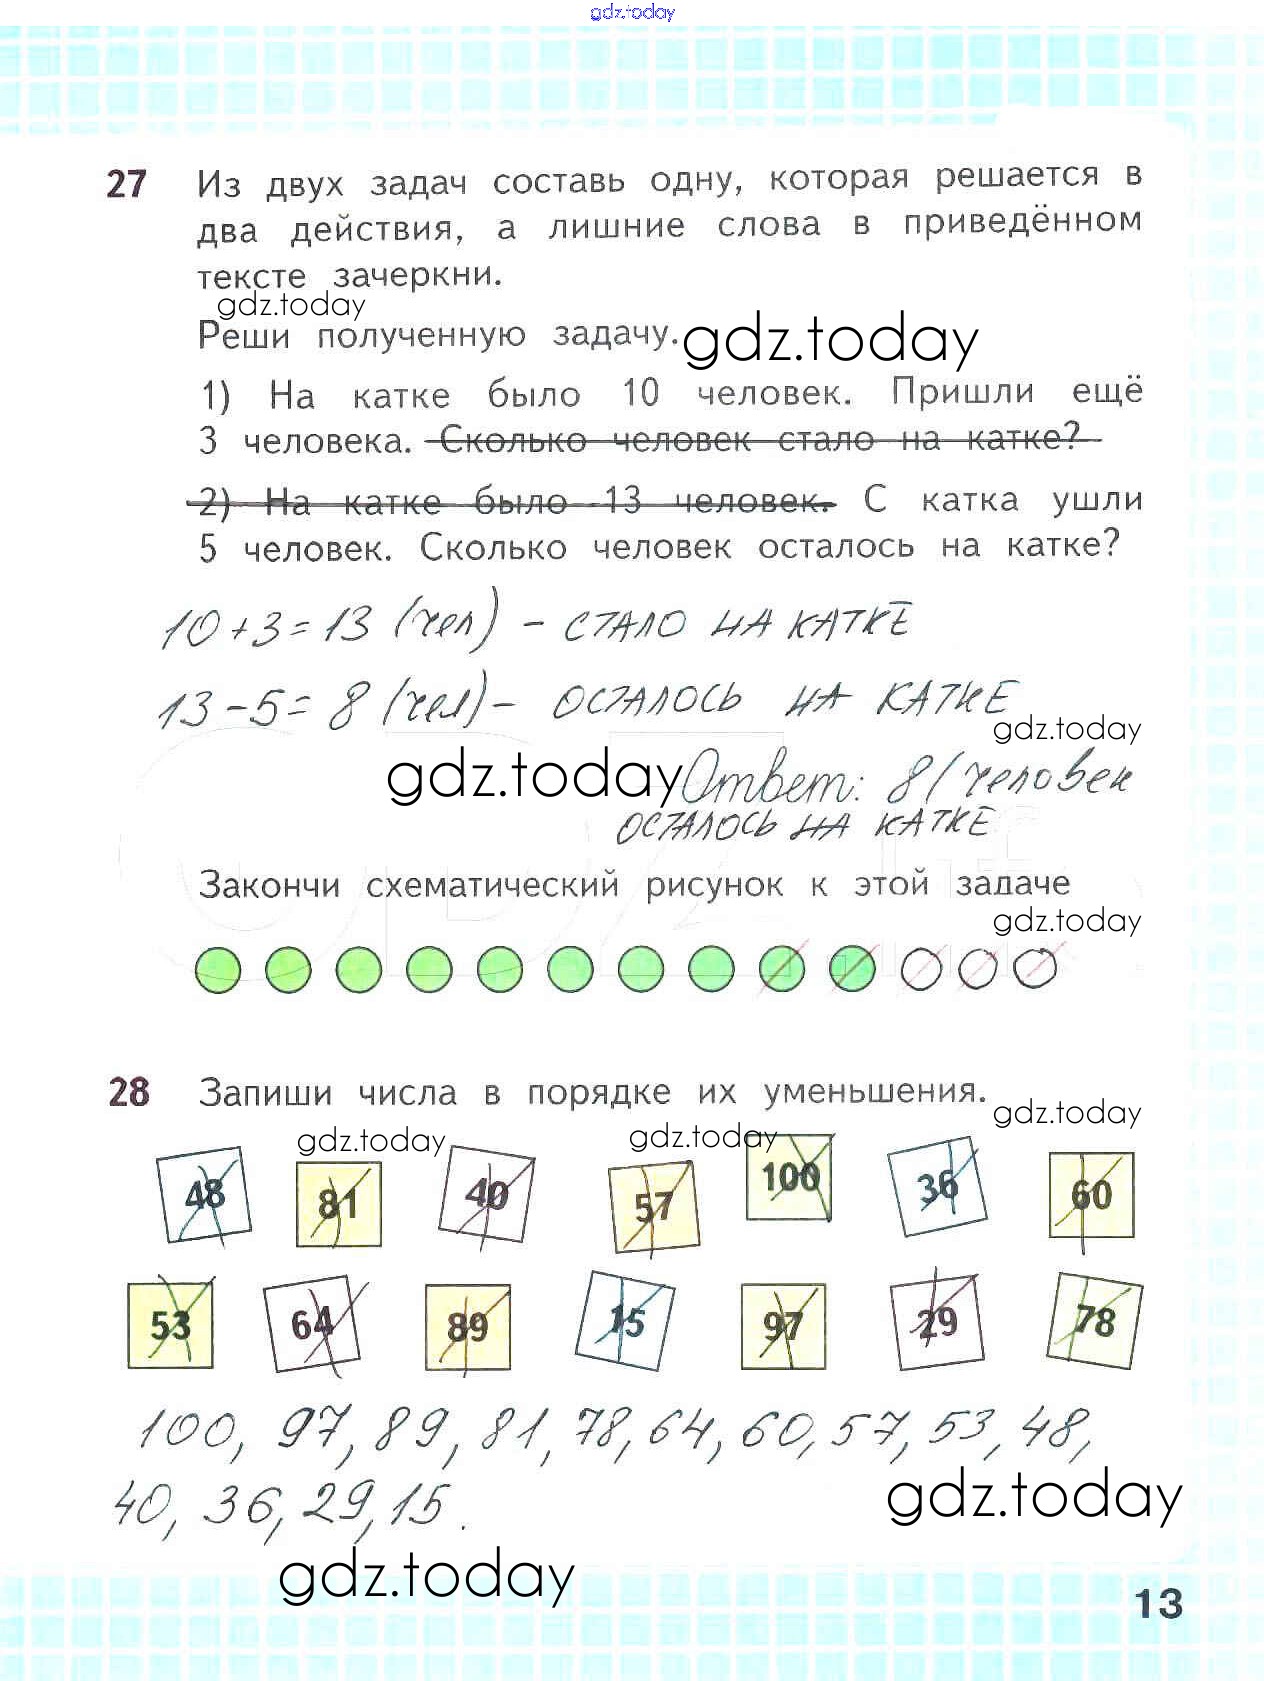 gdz.today
27 Из двух задач составь одну, которая решается в
два действия, а лишние слова в приведённом
тексте зачеркни.
gdz.today
Реши полученную задачу. gdz.today
1) На катке было 10 человек. Пришли ещё
3 человека. Сколько человек стало на катке?
2) На катке было 13 человек. С катка ушли
5 человек. Сколько человек осталось на катке?
10+3=13 (чел) – СТАЛО НА КАТКЕ
13-5=8 (чел) – ОСТАЛОСЬ НА КАТКЕ
gdz.today
gdz.today Ответ: 8 / человек
ОСТАЛОСЬ НА КАТКЕ
Закончи схематический рисунок к этой задаче
gdz.today
28 Запиши числа в порядке их уменьшения.
gdz.today
gdz.today gdz.today
48 81 40 57 100 36 60
53 64 89 15 97 29 78
100, 97, 89, 81, 78, 64, 60, 57, 53, 48,
40, 36, 29, 15.
gdz.today
gdz.today
13